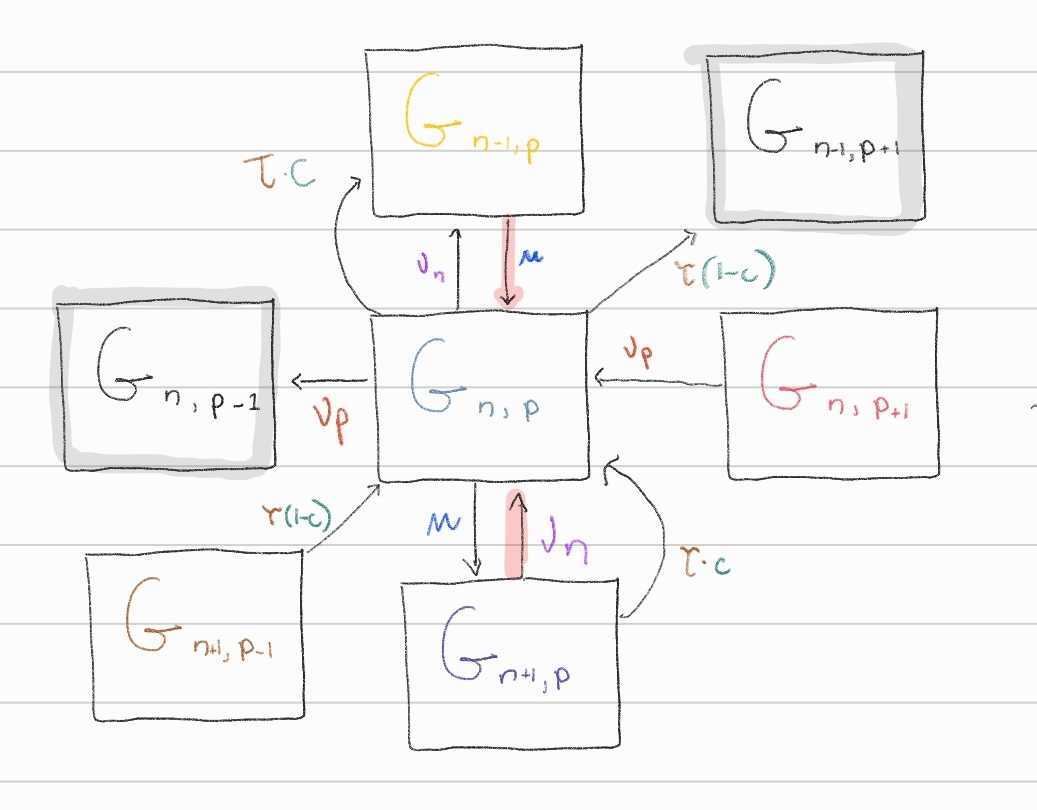 G n-1, p
G n-1, p+1
τ·c
νn
μ
τ(1-c)
G n, p-1
νp
G n, p
νp
G n, p+1
τ(1-c)
μ
νn
τ·c
G n+1, p-1
G n+1, p